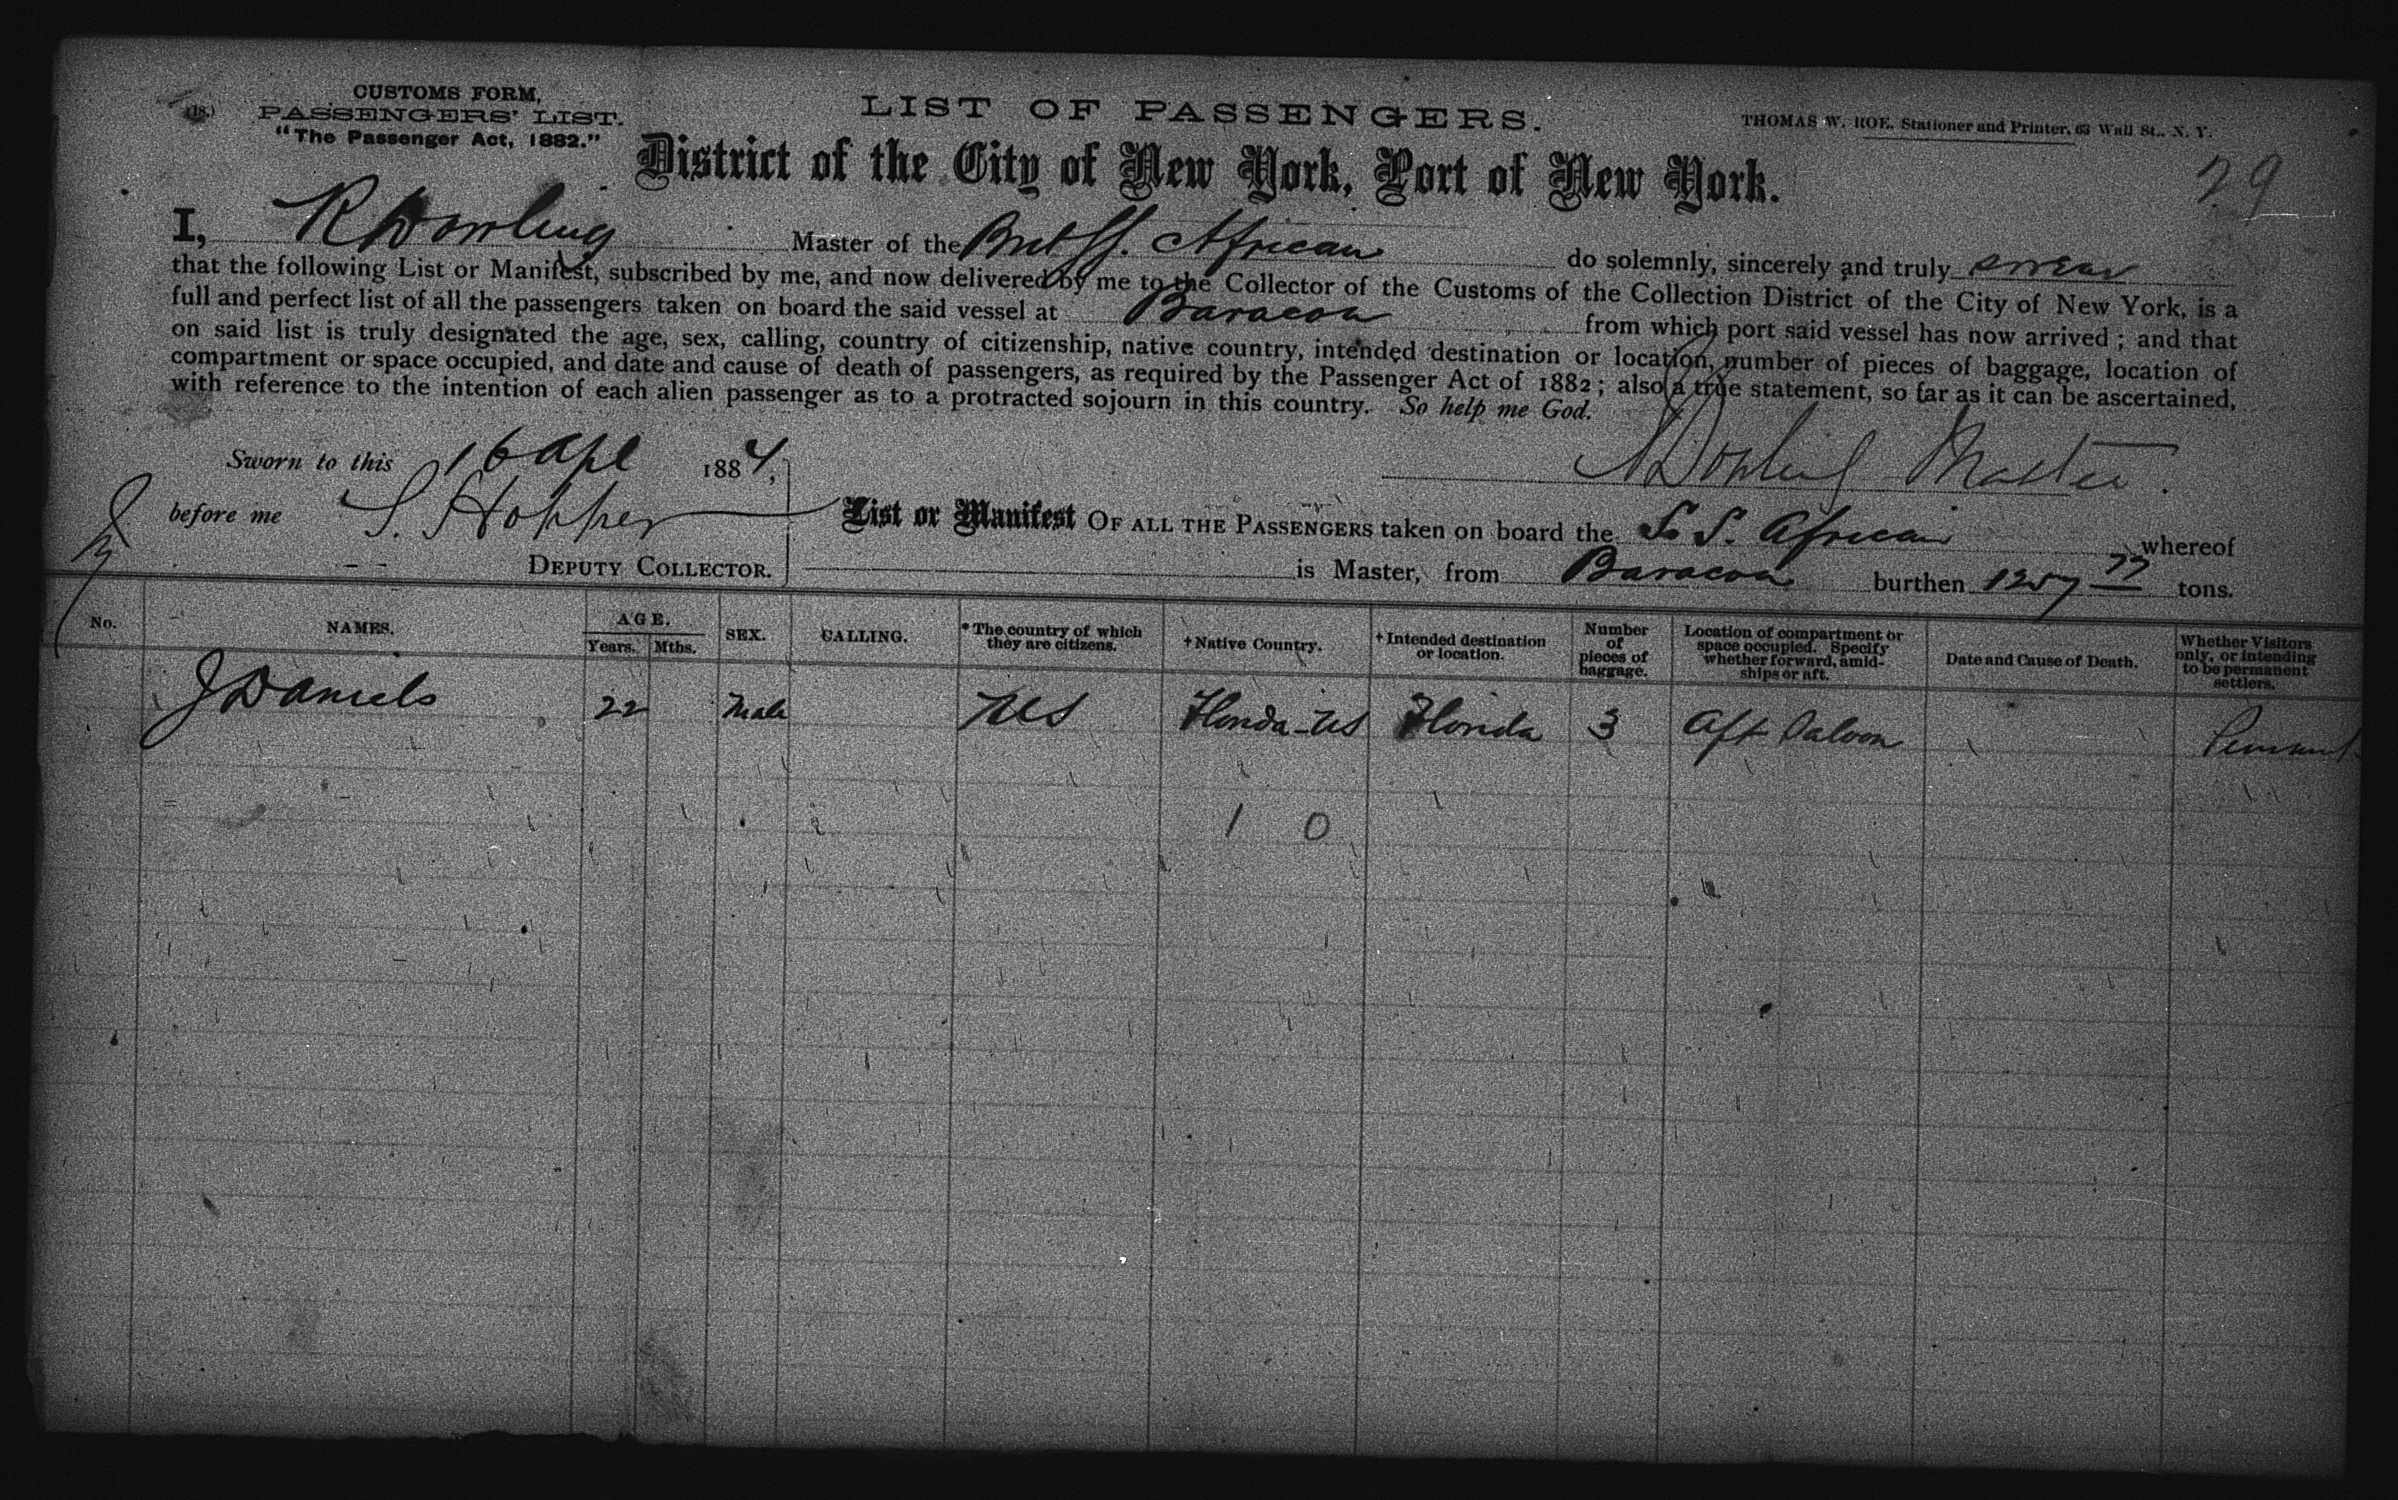 (18.)
CUSTOMS FORM,
PASSENGERS' LIST.
"The Passenger Act, 1882."
LIST OF PASSENGERS.
THOMAS W. ROE, Stationer and Printer, 63 Wall St., N. Y.
District of the City of New York, Port of New York.
29
I, R Dowling Master of the Brit SS. African do solemnly, sincerely and truly swear
that the following List or Manifest, subscribed by me, and now delivered by me to the Collector of the Customs of the Collection District of the City of New York, is a
full and perfect list of all the passengers taken on board the said vessel at Baracoa from which port said vessel has now arrived; and that
on said list is truly designated the age, sex, calling, country of citizenship, native country, intended destination or location, number of pieces of baggage, location of
compartment or space occupied, and date and cause of death of passengers, as required by the Passenger Act of 1882; also a true statement, so far as it can be ascertained,
with reference to the intention of each alien passenger as to a protracted sojourn in this country. So help me God.
Sworn to this 16 Apl 1884,
Dowling Master.
before me S. Hopper
DEPUTY COLLECTOR.
List or Manifest OF ALL THE PASSENGERS taken on board the S. S. African whereof
is Master, from Baracoa burthen 1257 77 tons.
No. NAMES. AGE. Years. Mths. SEX. CALLING. * The country of which they are citizens. † Native Country. † Intended destination or location. Number of pieces of baggage. Location of compartment or space occupied. Specify whether forward, amidships or aft. Date and Cause of Death. Whether Visitors only, or intending to be permanent settlers.
J Daniels 22 Male US Florida - US Florida 3 Aft Saloon
1 0